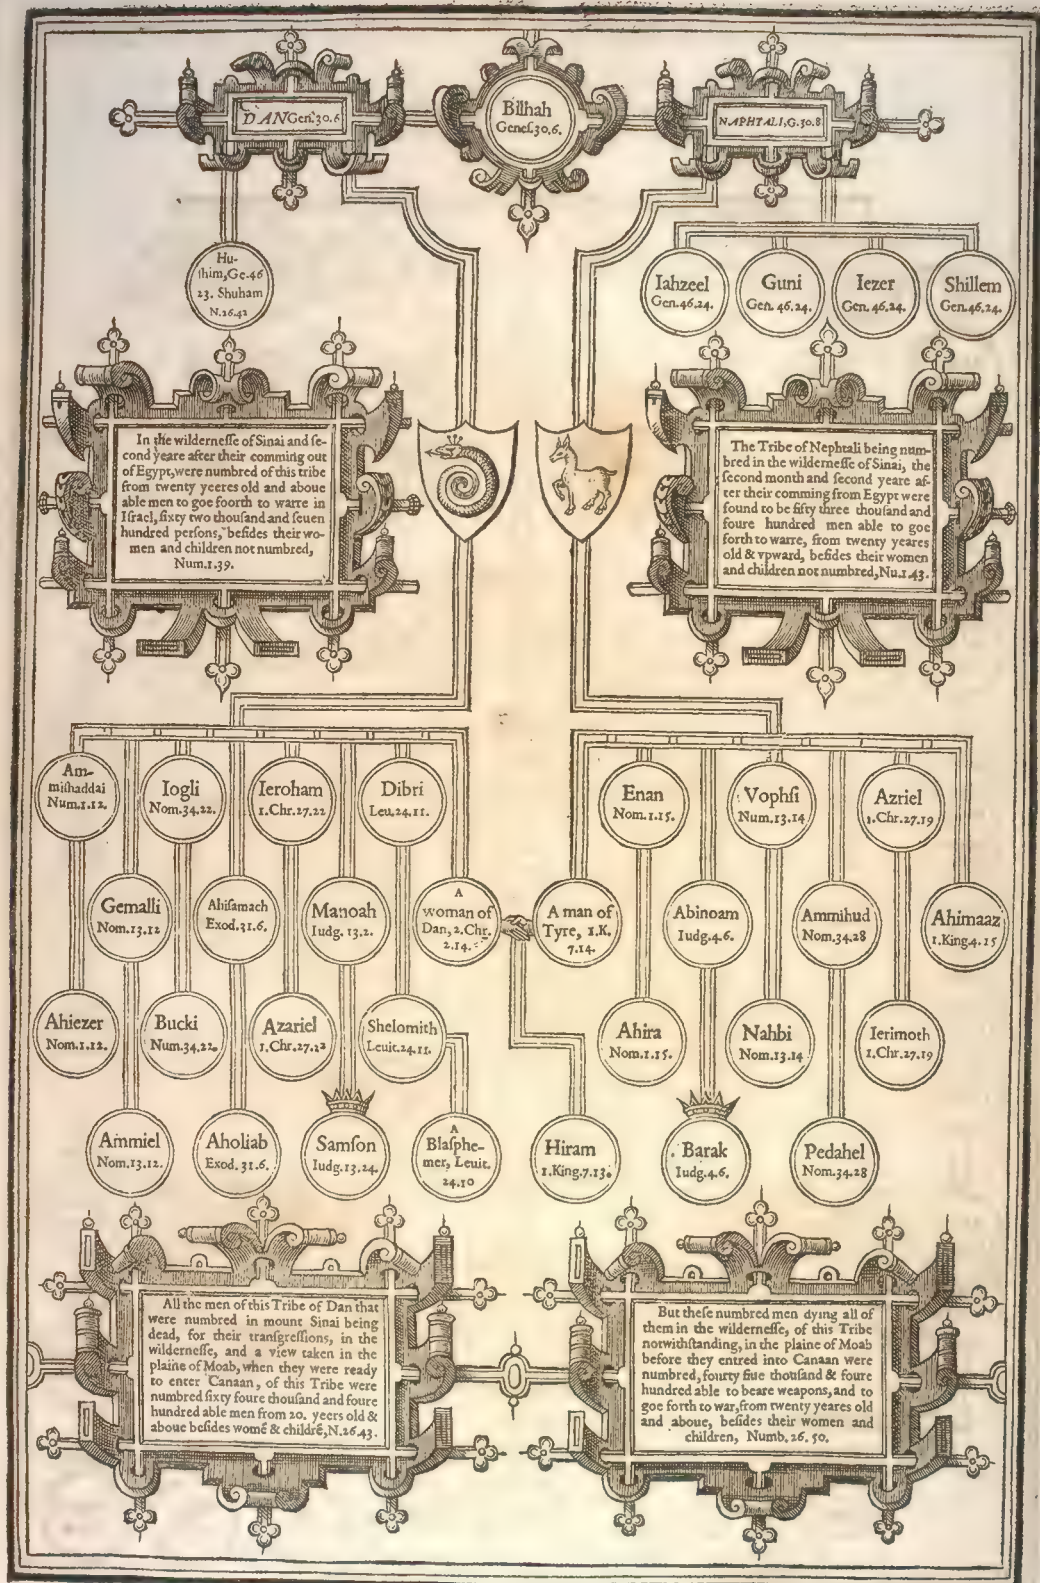 DAN Gen. 30. 6
Bilhah
Genes. 30. 6.
NAPHTALI, G. 30. 8
Hu-
ſhim, Ge. 46
23. Shuham
N. 26. 42
Iahzeel
Gen. 46. 24.
Guni
Gen. 46. 24.
Iezer
Gen. 46. 24.
Shillem
Gen. 46. 24.
In the wilderneſſe of Sinai and ſe-
cond yeare after their comming out
of Egypt, were numbred of this tribe
from twenty yeeres old and aboue
able men to goe foorth to warre in
Iſrael, ſixty two thouſand and ſeuen
hundred perſons, beſides their wo-
men and children not numbred,
Num. 1. 39.
The Tribe of Nephtali being num-
bred in the wilderneſſe of Sinai, the
ſecond month and ſecond yeare af-
ter their comming from Egypt were
found to be fifty three thouſand and
foure hundred men able to goe
forth to warre, from twenty yeares
old & vpward, beſides their women
and children not numbred, Nu. 1 43.
Am-
miſhaddai
Num. 1. 12.
Iogli
Nom. 34. 22.
Ieroham
1. Chr. 27. 22
Dibri
Leu. 24. 11.
Enan
Nom. 1. 15.
Vophſi
Num. 13. 14
Azriel
1. Chr. 27. 19
Gemalli
Nom. 13. 12
Ahiſamach
Exod. 31. 6.
Manoah
Iudg. 13. 2.
A
woman of
Dan, 2. Chr.
2. 14.
A man of
Tyre, 1. K.
7. 14.
Abinoam
Iudg. 4. 6.
Ammihud
Nom. 34. 28
Ahimaaz
1. King. 4. 15
Ahiezer
Nom. 1. 12.
Bucki
Num. 34. 22.
Azariel
1. Chr. 27. 22
Shelomith
Leuit. 24. 11.
Ahira
Nom. 1. 15.
Nahbi
Nom. 13. 14
Ierimoth
1. Chr. 27. 19
Ammiel
Nom. 13. 12.
Aholiab
Exod. 31. 6.
Samſon
Iudg. 13. 24.
A
Blaſphe-
mer, Leuit.
24. 10
Hiram
1. King. 7. 13.
Barak
Iudg. 4. 6.
Pedahel
Nom. 34. 28
All the men of this Tribe of Dan that
were numbred in mount Sinai being
dead, for their tranſgreſſions, in the
wilderneſſe, and a view taken in the
plaine of Moab, when they were ready
to enter Canaan, of this Tribe were
numbred ſixty foure thouſand and foure
hundred able men from 20. yeers old &
aboue beſides womē & childrē, N. 26 43.
But theſe numbred men dying all of
them in the wilderneſſe, of this Tribe
notwithſtanding, in the plaine of Moab
before they entred into Canaan were
numbred, fourty fiue thouſand & foure
hundred able to beare weapons, and to
goe forth to war, from twenty yeares old
and aboue, beſides their women and
children, Numb. 26. 50.